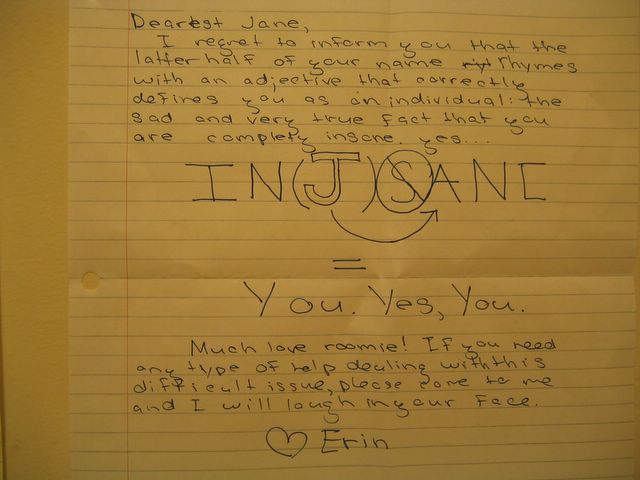 Dearest Jane,
I regret to inform you that the
latter half of your name rhymes
with an adjective that correctly
defines you as an individual: the
sad and very true fact that you
are complety insane. yes...
IN(J)SANE
=
You. Yes, You.
Much love roomie! If you need
any type of help dealing with this
difficult issue, please come to me
and I will laugh in your face.
♡ Erin